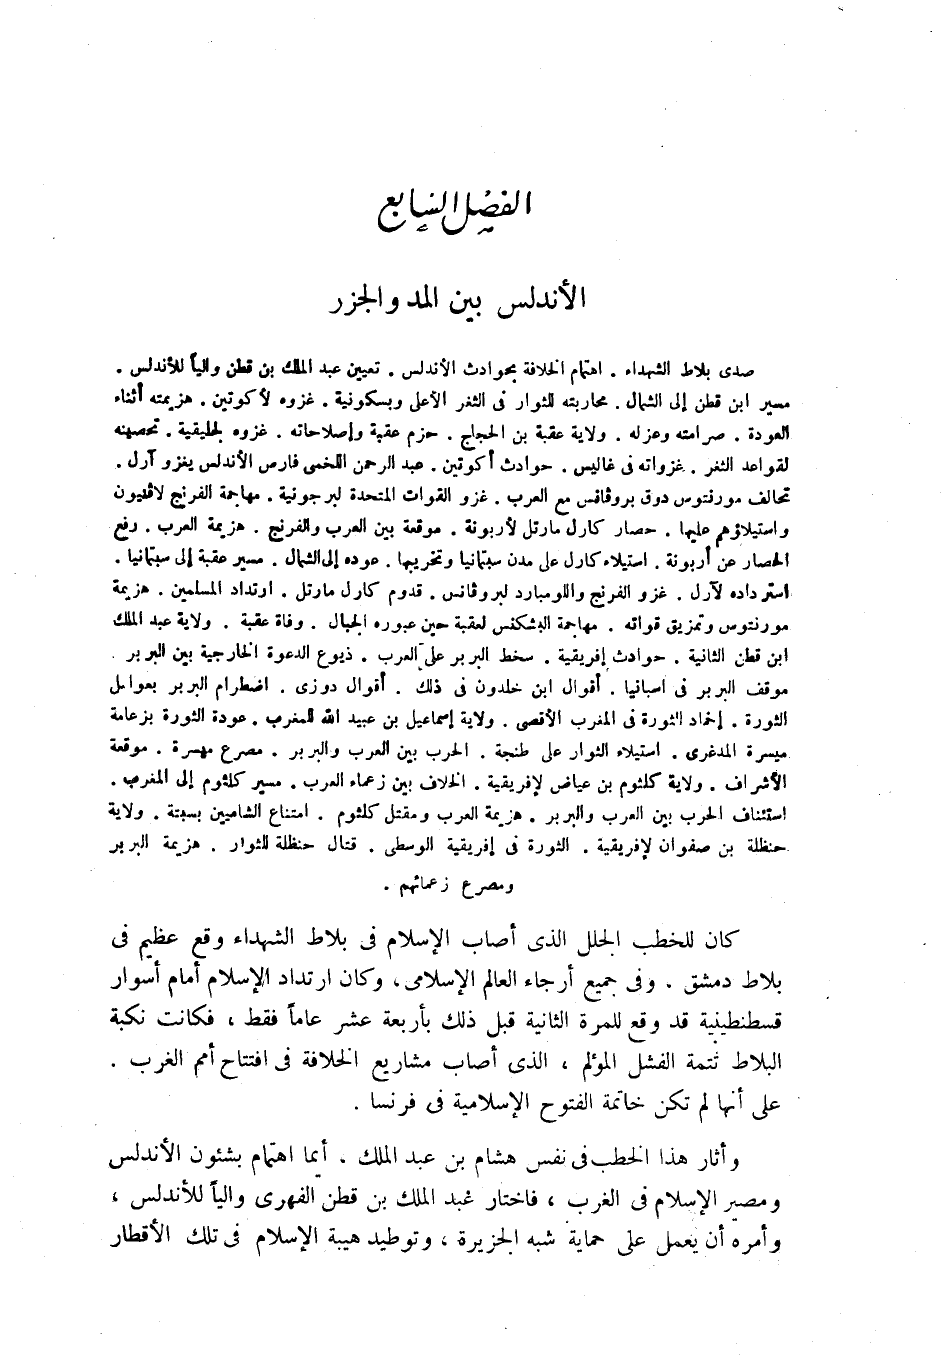 الفصل السابع
الأندلس بين المد والجزر
صدى بلاط الشهداء . اهتمام الخلافة بحوادث الأندلس . تعيين عبد الملك بن قطن والياً للأندلس .
مسير ابن قطن إلى الشمال . محاربته للثوار فى الثغر الأعلى وبسكونية . غزوه لأكوتين . هزيمته أثناء
العودة . صرامته وعزله . ولاية عقبة بن الحجاج . حزم عقبة وإصلاحاته . غزوه لجليقية . تحصينه
لقواعد الثغر . غزواته فى غاليس . حوادث أكوتين . عبد الرحمن اللخمى فارس الأندلس يغزو آرل .
تحالف مورنتوس دوق بروڤانس مع العرب . غزو القوات المتحدة لبرجونية . مهاجمة الفرنج لاڤنيون
واستيلاؤهم عليها . حصار كارل مارتل لأربونة . موقعة بين العرب والفرنج . هزيمة العرب . رفع
الحصار عن أربونة . استيلاء كارل على مدن سبتمانيا وتخريبها . عوده إلى الشمال . مسير عقبة إلى سبتمانيا .
استرداده لآرل . غزو الفرنج واللومبارد لبروڤانس . قدوم كارل مارتل . ارتداد المسلمين . هزيمة
مورنتوس وتمزيق قواته . مهاجمة البشكنس لعقبة حين عبوره الجبال . وفاة عقبة . ولاية عبد الملك
ابن قطن الثانية . حوادث إفريقية . سخط البربر على العرب . ذيوع الدعوة الخارجية بين البربر .
موقف البربر فى اسبانيا . أقوال ابن خلدون فى ذلك . أقوال دوزى . اضطرام البربر بعوامل
الثورة . إخماد الثورة فى المغرب الأقصى . ولاية إسماعيل بن عبيد الله للمغرب . عودة الثورة بزعامة
ميسرة المدغرى . استيلاء الثوار على طنجة . الحرب بين العرب والبربر . مصرع ميسرة . موقعة
الأشراف . ولاية كلثوم بن عياض لإفريقية . الخلاف بين زعماء العرب . مسير كلثوم إلى المغرب .
استئناف الحرب بين العرب والبربر . هزيمة العرب ومقتل كلثوم . امتناع الشاميين بسبتة . ولاية
حنظلة بن صفوان لإفريقية . الثورة فى إفريقية الوسطى . قتال حنظلة للثوار . هزيمة البربر
ومصرع زعمائهم .
كان للخطب الجلل الذى أصاب الإسلام فى بلاط الشهداء وقع عظيم فى
بلاط دمشق . وفى جميع أرجاء العالم الإسلامى ، وكان ارتداد الإسلام أمام أسوار
قسطنطينية قد وقع للمرة الثانية قبل ذلك بأربعة عشر عاماً فقط ، فكانت نكبة
البلاط تتمة الفشل المؤلم ، الذى أصاب مشاريع الخلافة فى افتتاح أمم الغرب .
على أنها لم تكن خاتمة الفتوح الإسلامية فى فرنسا .
وأثار هذا الخطب فى نفس هشام بن عبد الملك . أيما اهتمام بشئون الأندلس
ومصير الإسلام فى الغرب ، فاختار عبد الملك بن قطن الفهرى والياً للأندلس ،
وأمره أن يعمل على حماية شبه الجزيرة ، وتوطيد هيبة الإسلام فى تلك الأقطار